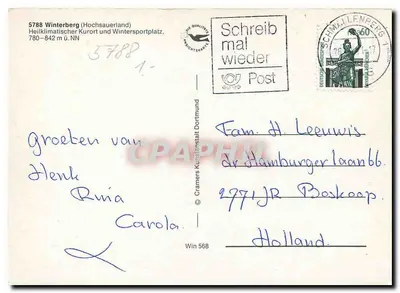 5788 Winterberg (Hochsauerland)
Heilklimatischer Kurort und Wintersportplatz,
780-842 m ü. NN
5788
1-
Schreib
mal
wieder
Post
SCHMALLENBERG 1
60
Groeten van
Henk
Ria
Carola.
© Cramers Kunstanstalt Dortmund
Win 568
Fam. H. Leeuwis
dr Hamburgerlaan 66
2771 JR Boskoop
Holland.
CPAPHIL